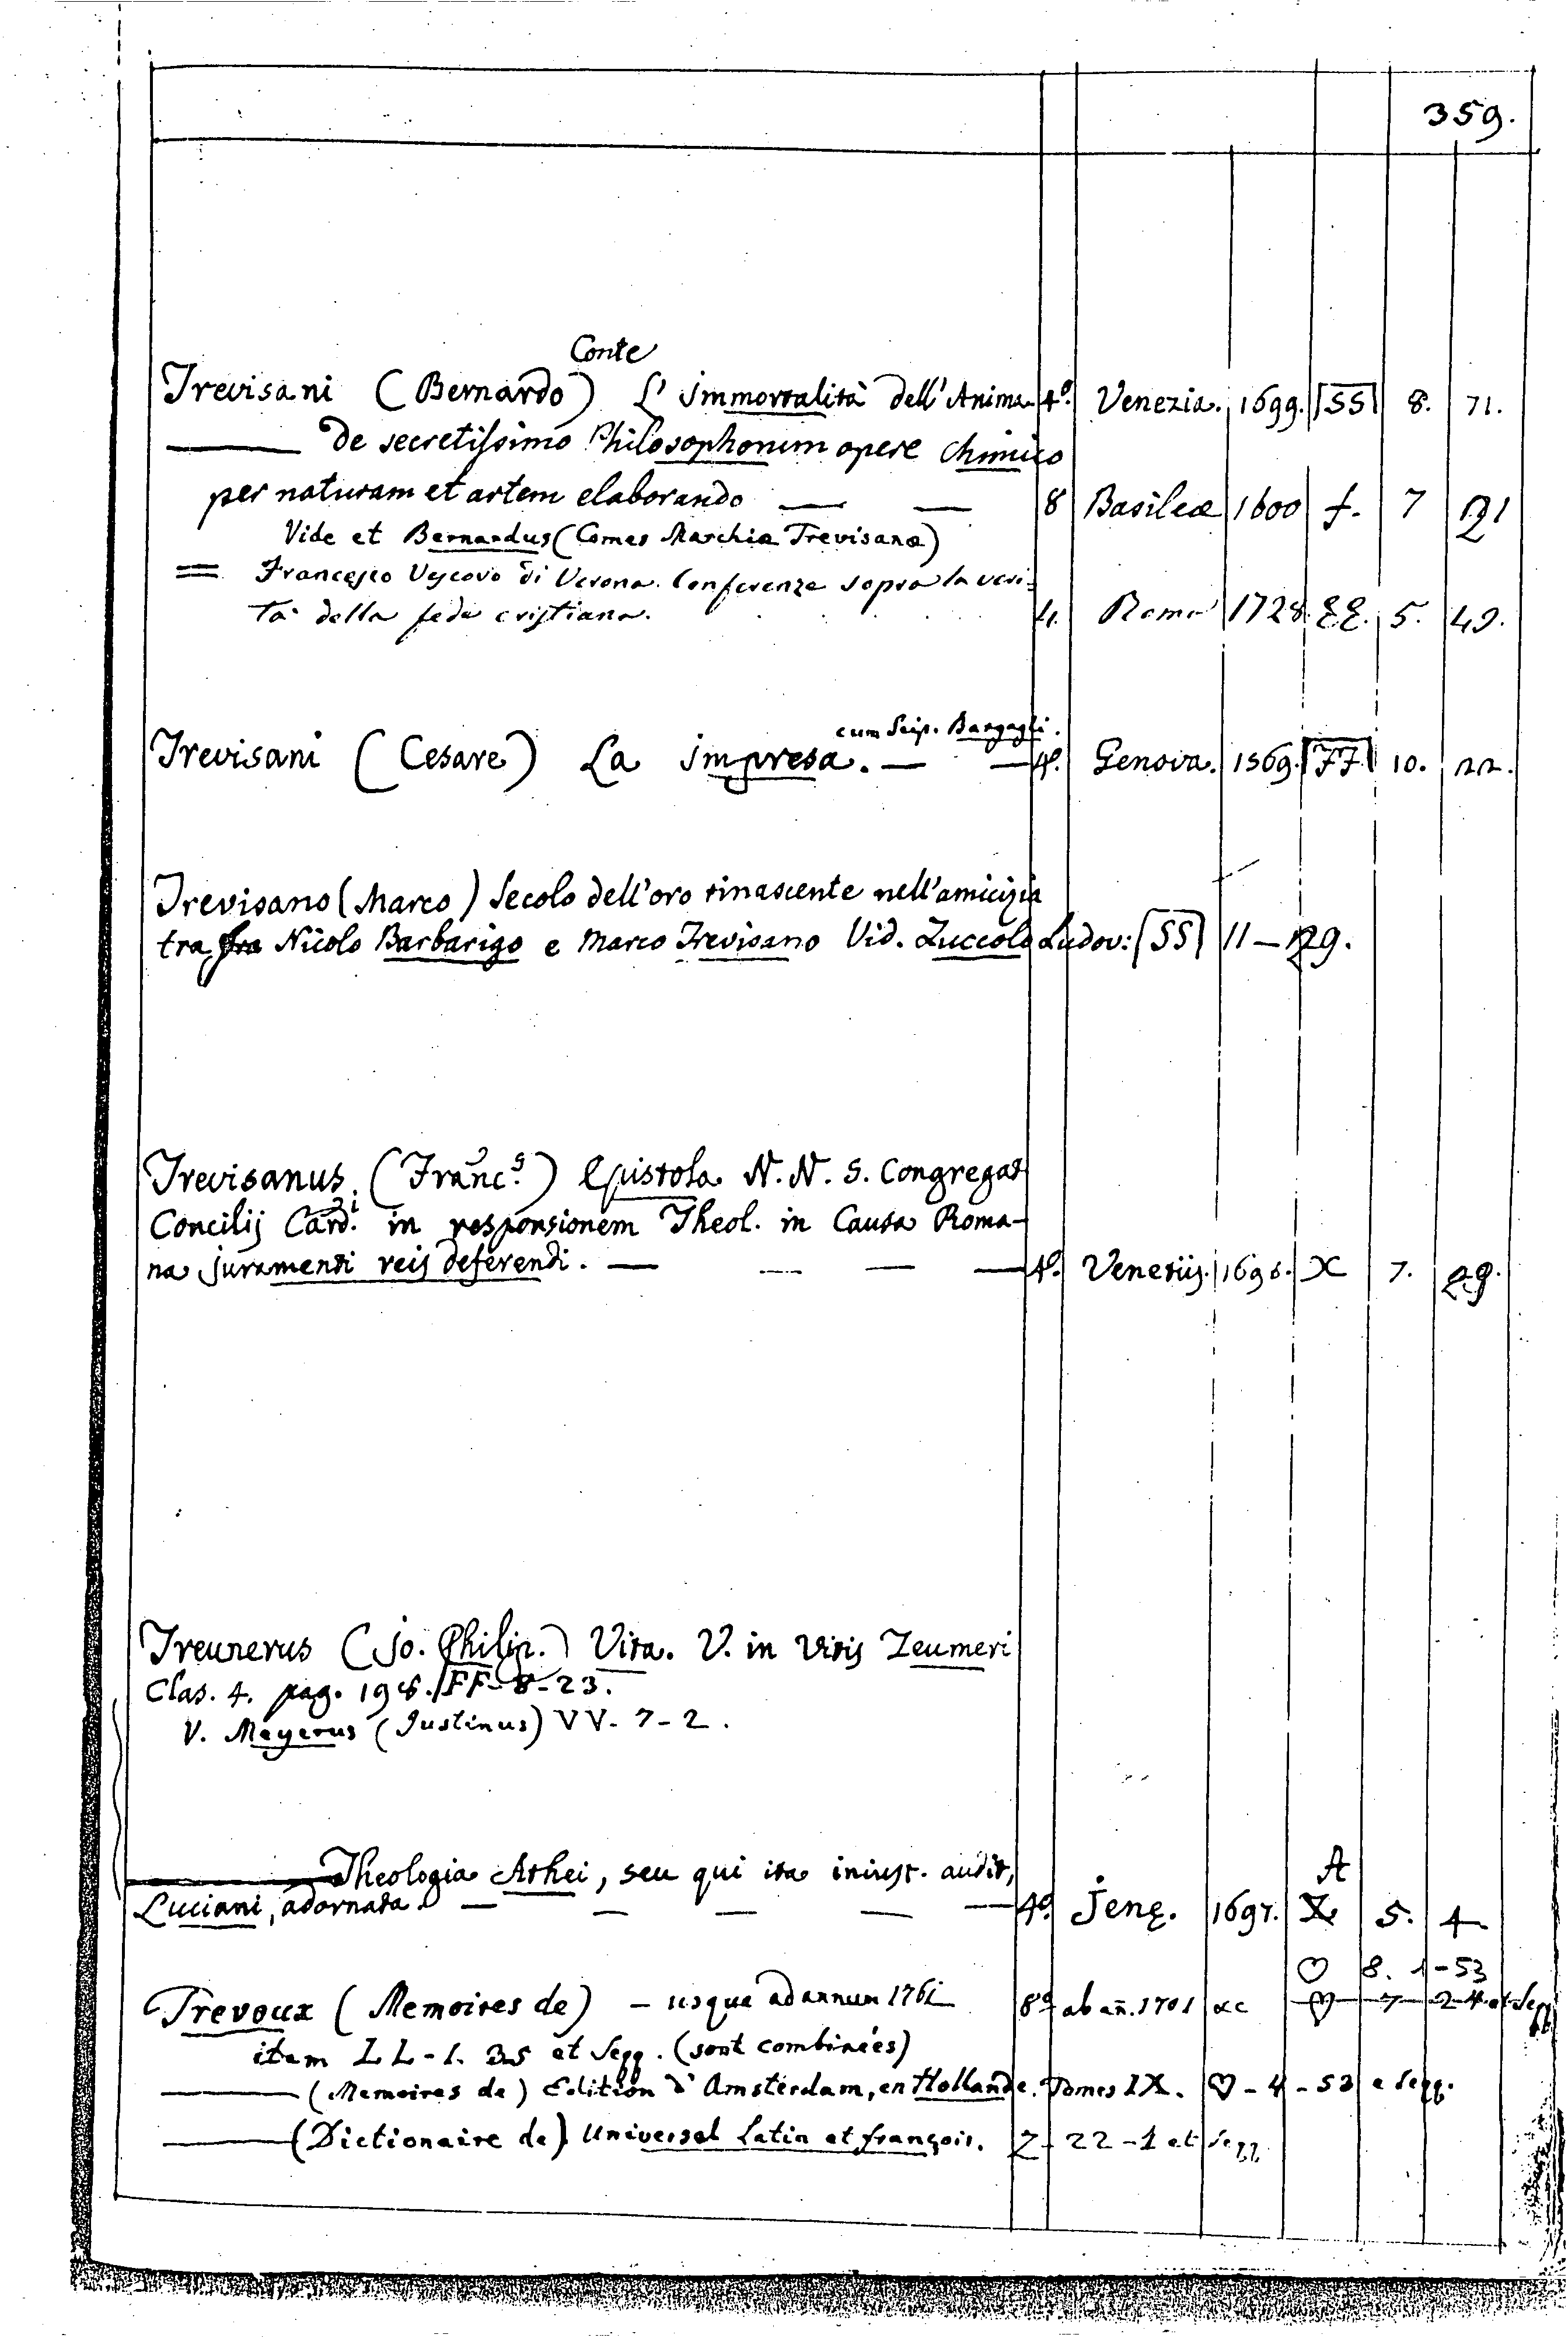 359.
Conte
Trevisani (Bernardo) L'immortalità dell'Anima 4º. Venezia. 1699. SS 8. 71.
de secretissimo Philosophorum opere chimico
per naturam et artem elaborando — — 8 Basileæ 1600 f. 7 21
Vide et Bernardus (Comes Marchiæ Trevisanæ)
= Francesco Vescovo di Verona. Conferenze sopra la veri-
tà della fede cristiana. 4. Roma 1728. 5. 49.
cum Scip. Bargagli.
Trevisani (Cesare) La impresa. — — 4º. Genova. 1569. FF 10. 22.
Trevisano (Marco) Secolo dell'oro rinascente nell'amicizia
tra fra Nicolo Barbarigo e Marco Trevisano Vid. Zuccolo Ludov: SS 11 - 29.
Trevisanus. (Franc.s) Epistola N. N. S. Congregat
Concilij Card.i in responsionem Theol. in Causa Roma-
na juramenti reis deferendi. — — — — 4º. Venetiis. 1696. X 7. 29.
Treunerus (Jo. Philip.) Vita. V. in Vitis Zeumeri
Clas. 4. pag. 198. FF-8-23.
V. Meyerus (Justinus) VV-7-2.
Theologia Athei, seu qui ita iniust. audit, A
Luciani, adornata. — — — — — 4º. Jenę. 1697. X 5. 4
♡ 8. 1-53
Trevoux (Memoires de) - usque ad annum 1761 8º ab añ. 1701 &c ♡ 7 2-4 et segg
item LL-1. 35 et Segg. (sont combinées)
— (Memoires de) Edition d'Amsterdam, en Hollande. Tomes IX. ♡-4-53 e segg.
— (Dictionaire de) Universel Latin et françois. Z-22-1 et segg